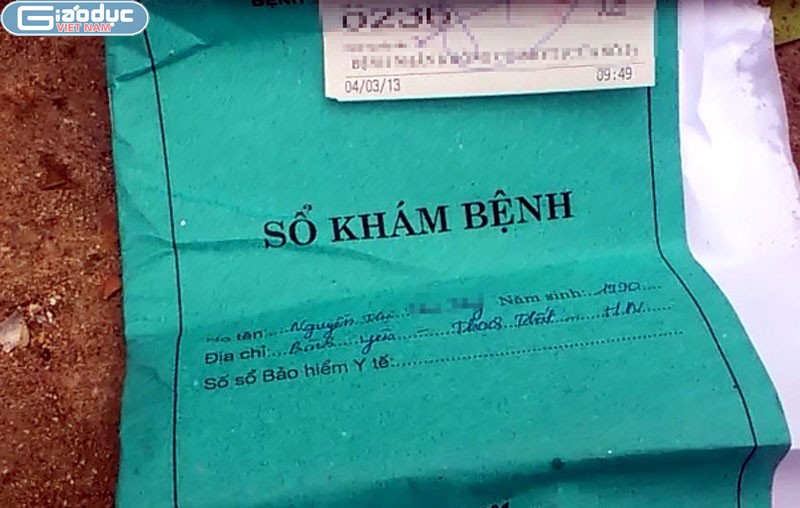 Giáo dục
VIỆT NAM
0236
04/03/13 09:49
SỔ KHÁM BỆNH
Họ tên: Nguyễn Thị Năm sinh: 1990
Địa chỉ: Bình Yên - Thạch Thất - H.N
Số sổ Bảo hiểm Y tế: